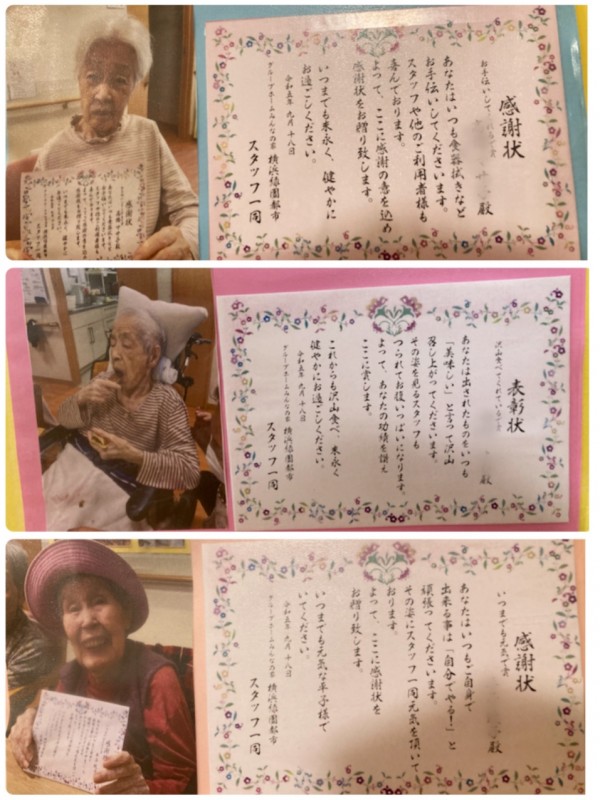 感謝状
殿
あなたはいつも食器拭きなど
お手伝いしてくださいます。
スタッフや他のご利用者様も
喜んでおります。
よって、ここに感謝の意を込め
感謝状をお贈り致します。
いつまでも末永く、健やかに
お過ごしください。
令和五年 九月 十八日
グループホームみんなの家 横浜緑園都市
スタッフ一同
感謝状
表彰状
沢山食べてくれているで賞
殿
あなたは出されたものをいつも
「美味しい」と言って沢山
召し上がってくださいます。
その姿を見るスタッフも
つられてお腹いっぱいになります。
よって、あなたの功績を讃え
ここに表します。
これからも沢山食べ、末永く
健やかにお過ごしください。
令和五年 九月 十八日
グループホームみんなの家 横浜緑園都市
スタッフ一同
感謝状
いつまでも元気で賞
殿
あなたはいつもご自身で
出来る事は「自分でやる!」と
頑張ってくださいます。
その姿にスタッフ一同元気を頂いて
おります。
よって、ここに感謝状を
お贈り致します。
いつまでも元気な幸子様で
いてください。
令和五年 九月 十八日
グループホームみんなの家 横浜緑園都市
スタッフ一同